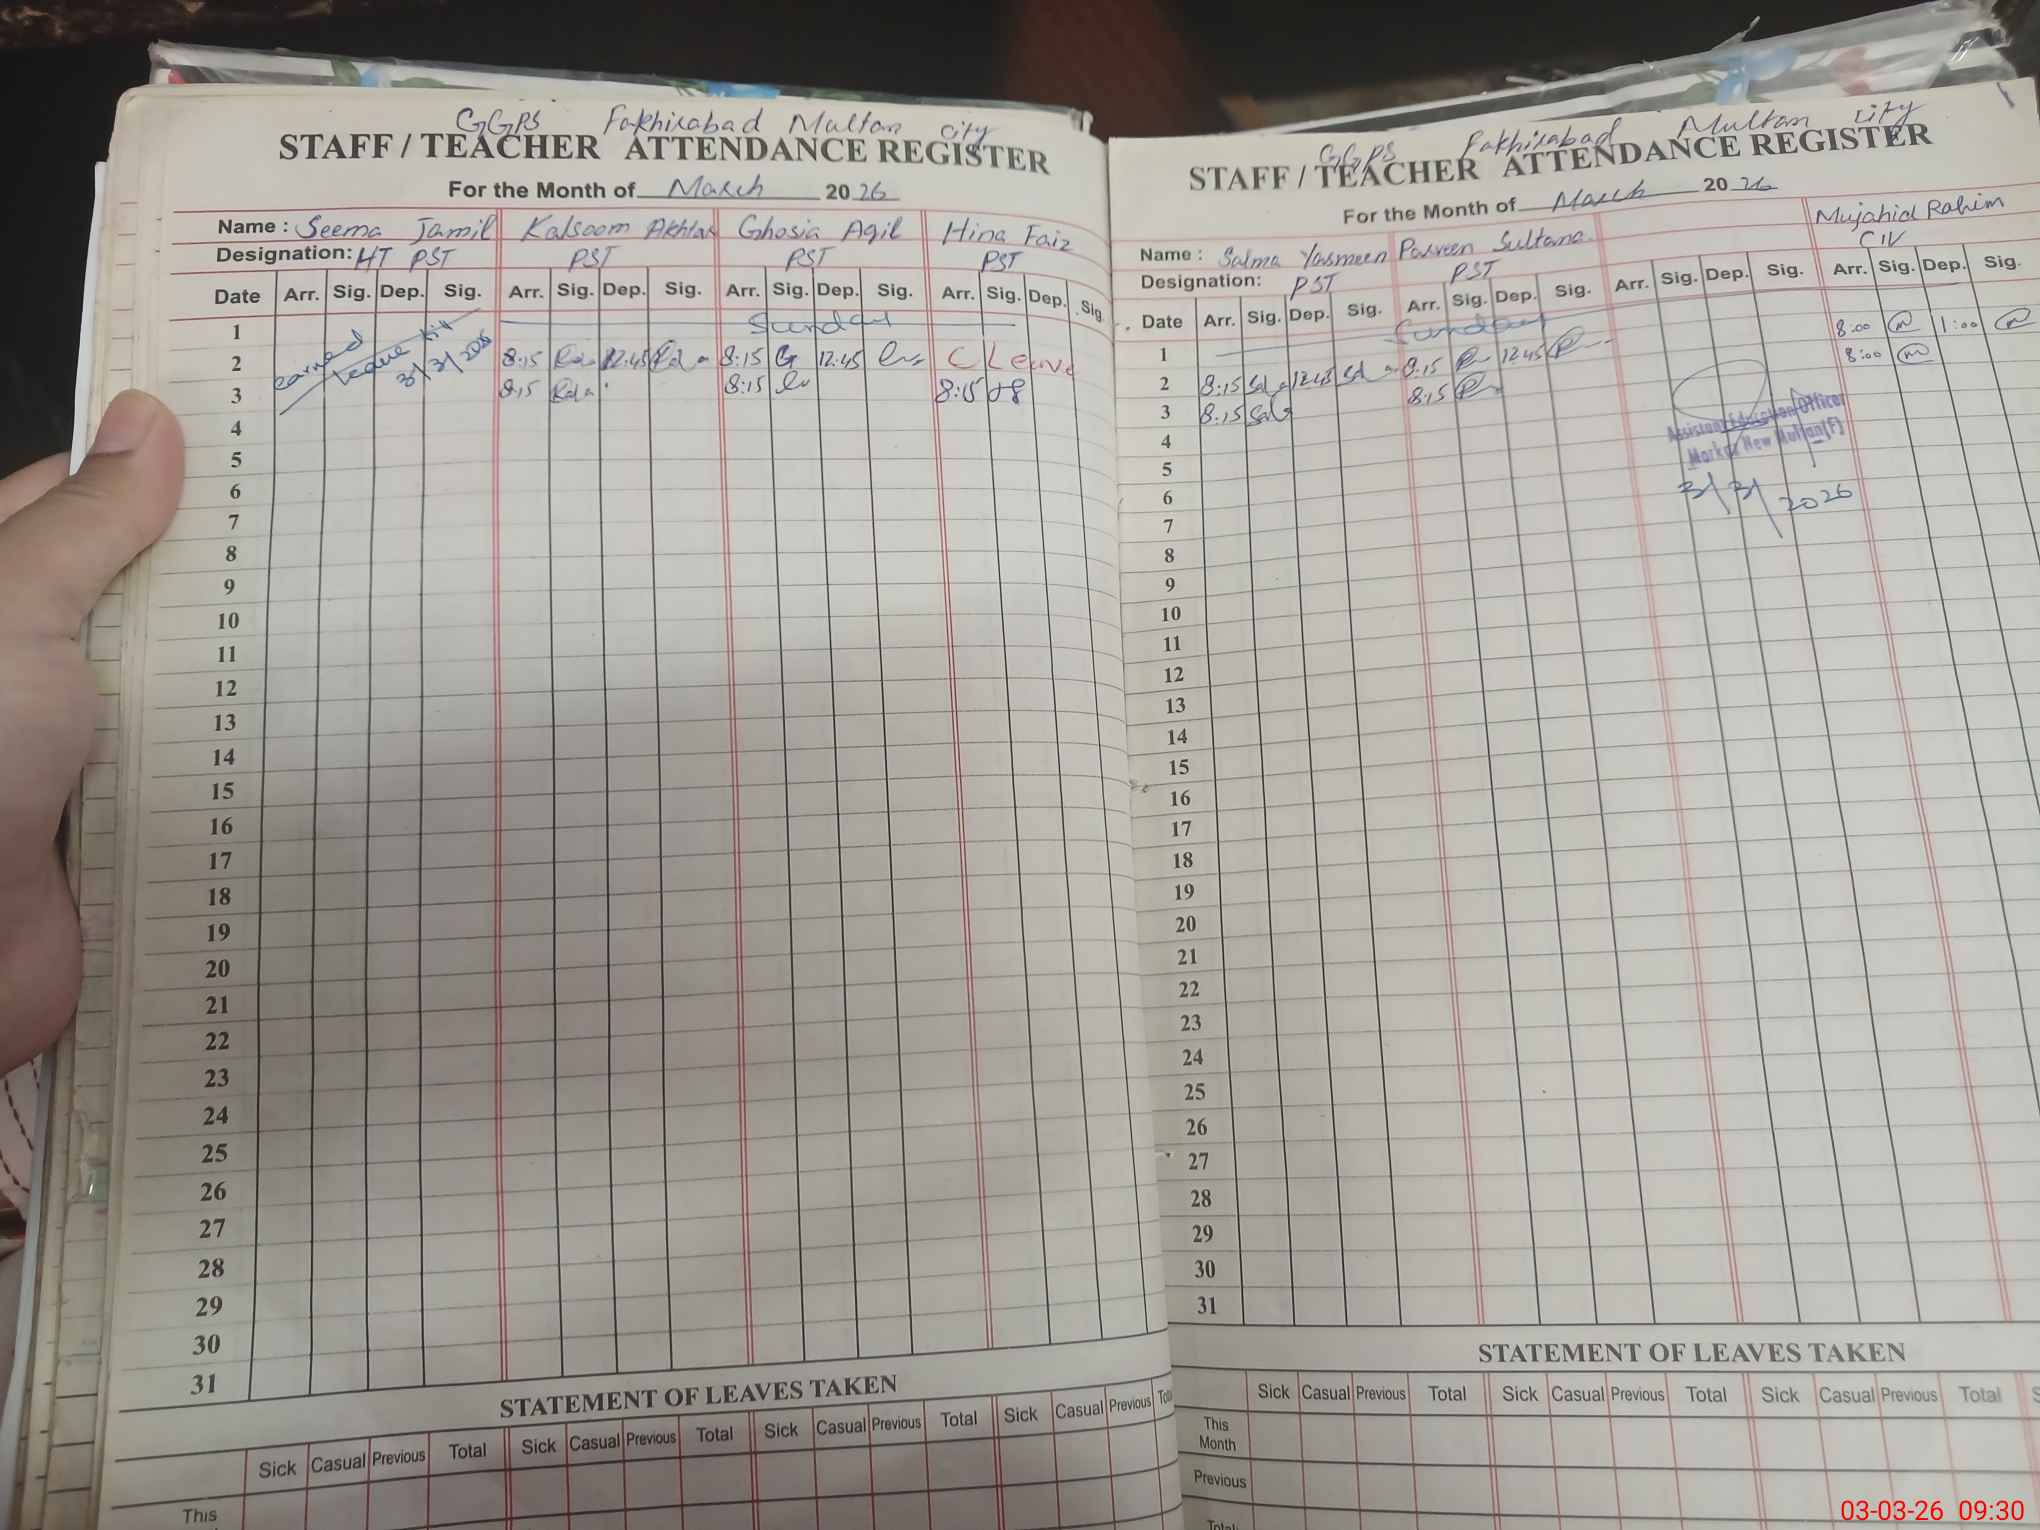 GGPS Fakhirabad Multan city
STAFF / TEACHER ATTENDANCE REGISTER
For the Month of March 2026
Name : Seema Jamil Kalsoom Akhtar Ghosia Aqil Hina Faiz
Designation: HT PST PST PST PST
Date Arr. Sig. Dep. Sig. Arr. Sig. Dep. Sig. Arr. Sig. Dep. Sig. Arr. Sig. Dep. Sig.
1 Sunday
earned leave till 3/3/2026
2 8:15 12:45 8:15 G 12:45 C Leave
3 8:15 8:15 8:15
4
5
6
7
8
9
10
11
12
13
14
15
16
17
18
19
20
21
22
23
24
25
26
27
28
29
30
31
STATEMENT OF LEAVES TAKEN
Sick Casual Previous Total Sick Casual Previous Total Sick Casual Previous Total Sick Casual Previous
This
GGPS Fakhirabad Multan city
STAFF / TEACHER ATTENDANCE REGISTER
For the Month of March 2026
Name : Salma Yasmeen Parveen Sultana Mujahid Rahim
Designation: PST PST CIV
Date Arr. Sig. Dep. Sig. Arr. Sig. Dep. Sig. Arr. Sig. Dep. Sig. Arr. Sig. Dep. Sig.
1 Sunday
2 8:15 12:45 8:15 12:45 8:00 1:00
3 8:15 8:15 8:00
Assistant Education Officer
Markaz New Multan (F)
3/3/2026
4
5
6
7
8
9
10
11
12
13
14
15
16
17
18
19
20
21
22
23
24
25
26
27
28
29
30
31
STATEMENT OF LEAVES TAKEN
Sick Casual Previous Total Sick Casual Previous Total Sick Casual Previous Total
This Month
Previous
Total
03-03-26 09:30